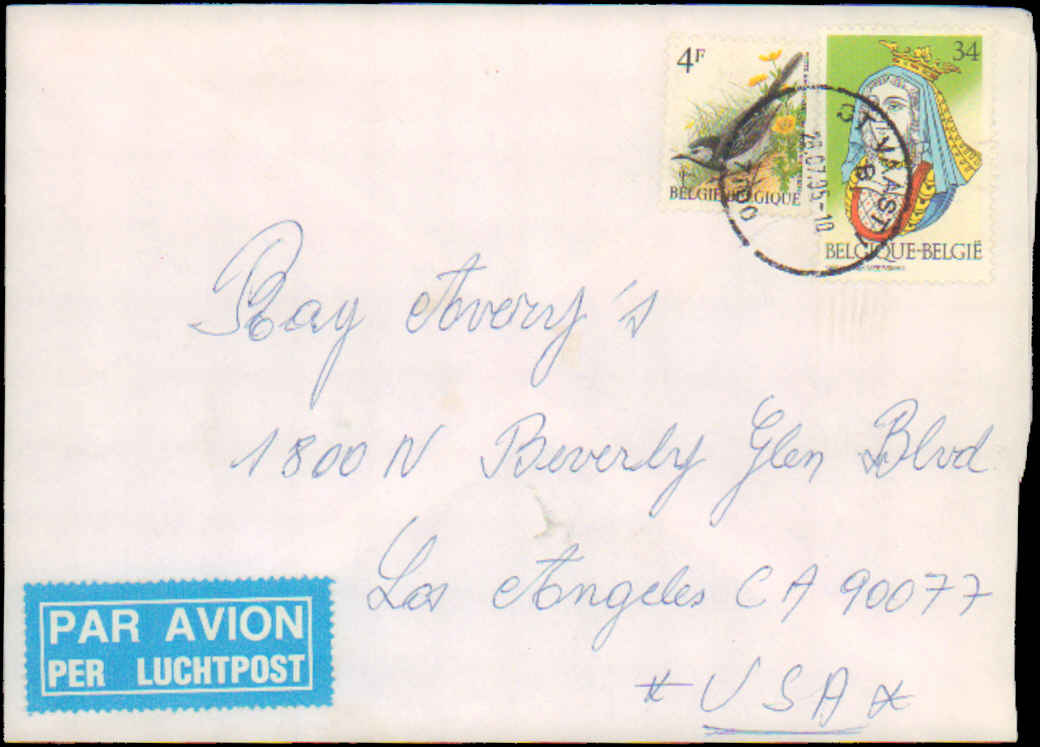 4F
BELGIË-BELGIQUE
34
BELGIQUE-BELGIË
ST VAAST
B
28.07.95-10
7100
Ray Avery's
1800 N Beverly Glen Blvd
Los Angeles CA 90077
* USA *
PAR AVION
PER LUCHTPOST